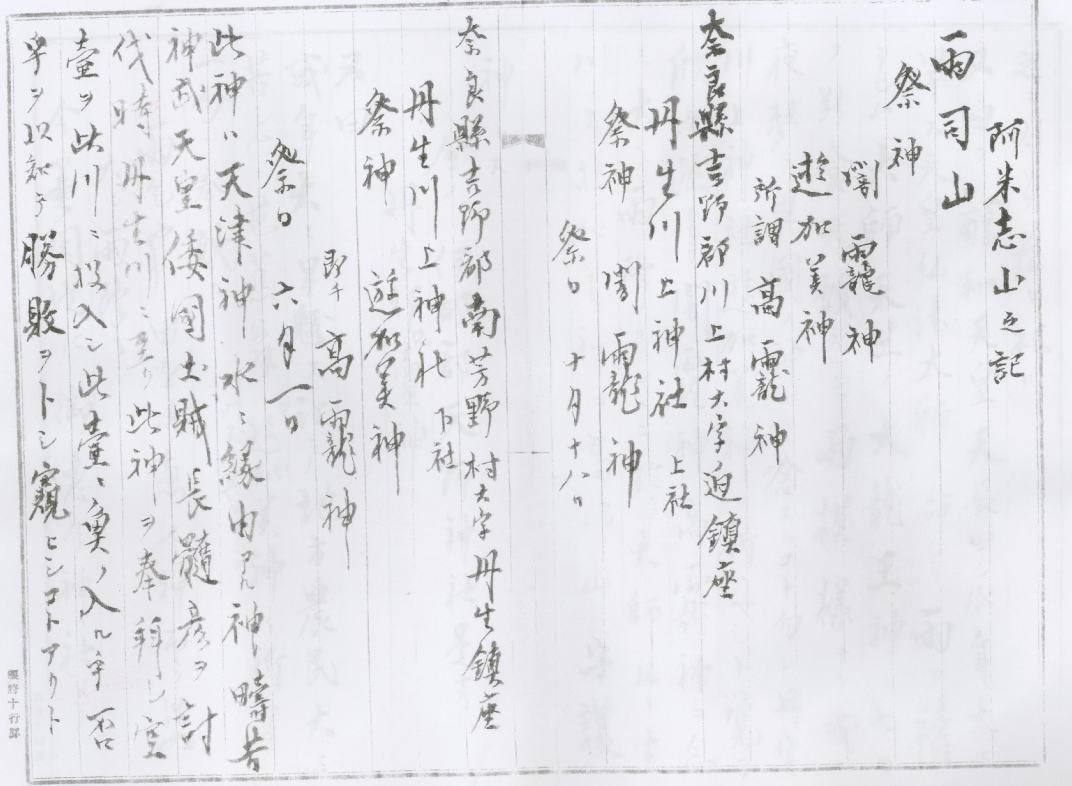 阿米志山之記
雨司山
祭神
闇靇神
遊加美神
所謂高靇神
奈良縣吉野郡川上村大字迫鎮座
丹生川上神社上社
祭神闇靇神
祭日十月十八日
奈良縣吉野郡南芳野村大字丹生鎮座
丹生川上神社下社
祭神遊加美神
即チ高靇神
祭日六月一日
此神ハ天津神水ニ縁由アル神疇昔
神武天皇倭國土賊長髓彦ヲ討
伐時丹生川ニ至リ此神ヲ奉拜シ空
壷ヲ此川ニ投入シ此壷ニ魚ノ入ルヤ否
ヤヲ以知テ勝敗ヲトシ窺ヒシコトアリト